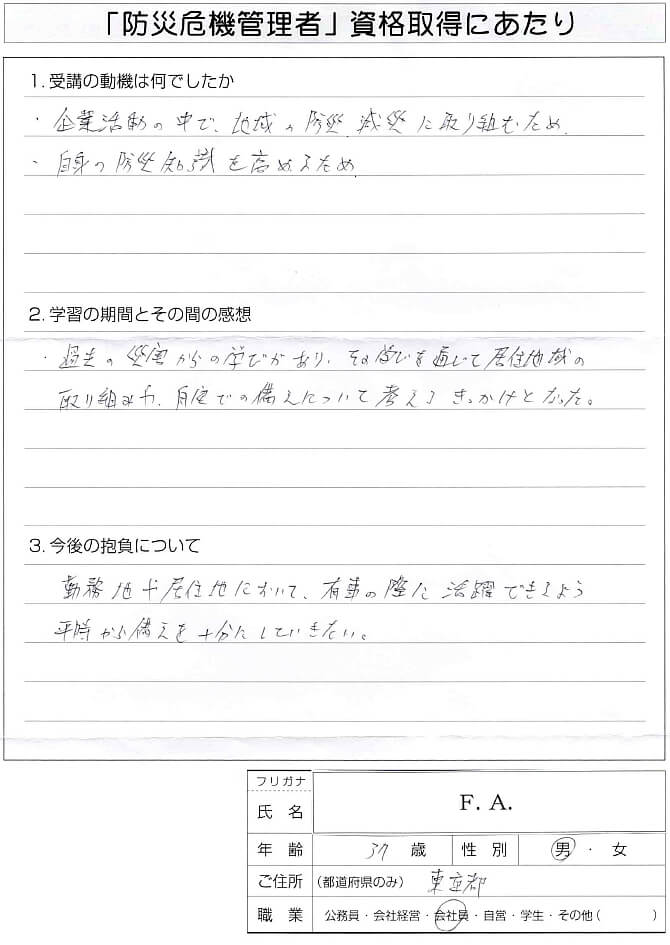 「防災危機管理者」資格取得にあたり
1. 受講の動機は何でしたか
・企業活動の中で、地域の防災、減災に取り組むため。
・自身の防災知識を高めるため。
2. 学習の期間とその間の感想
・過去の災害からの学びがあり、その学びを通じて居住地域の
取り組みや、自宅での備えについて考えるきっかけとなった。
3. 今後の抱負について
勤務地や居住地において、有事の際に活躍できるよう
平時から備えを十分にしていきたい。
フリガナ
氏名 F. A.
年齢 37 歳 性別 男・女
ご住所 (都道府県のみ) 東京都
職業 公務員・会社経営・会社員・自営・学生・その他( )